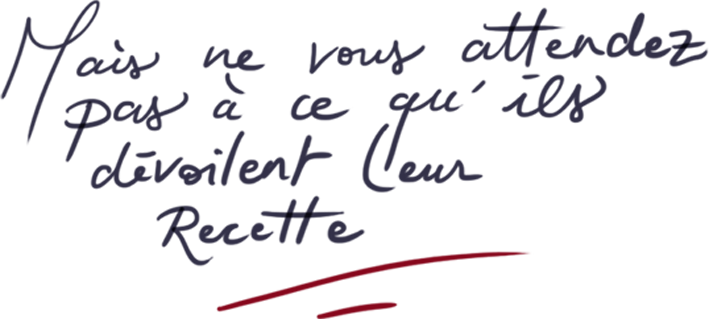 Mais ne vous attendez
pas à ce qu'ils
dévoilent leur
Recette